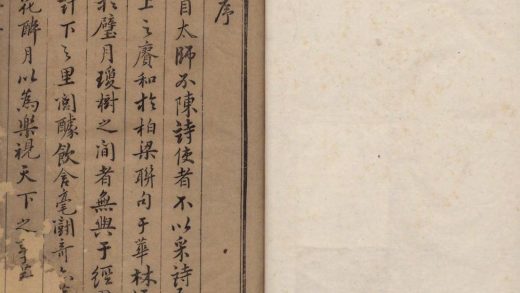 序
自太師不陳詩使者不以采詩
上之賡和於柏梁聯句于華林
於璧月瓊樹之間者無與于經
下之里閭醵飲含毫鬭奇
花醉月以為樂視天下之